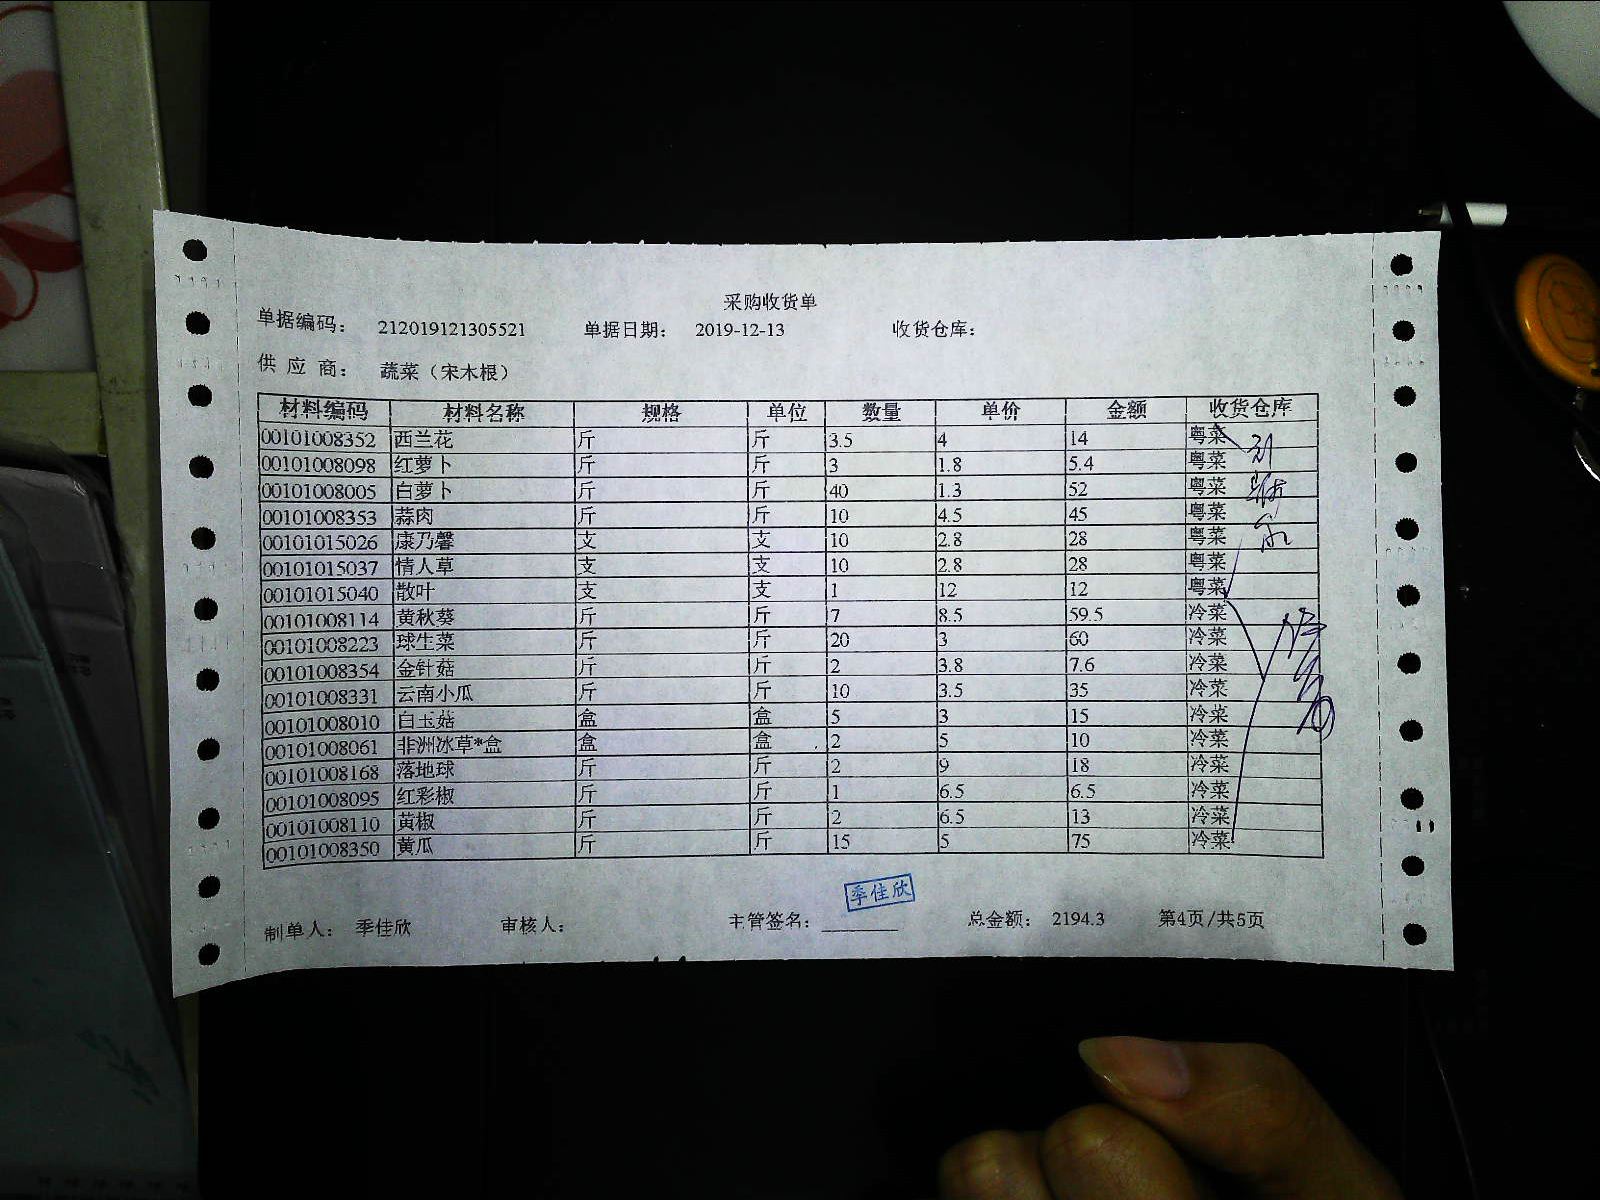 采购收货单
单据编码： 212019121305521 单据日期： 2019-12-13 收货仓库：
供 应 商： 蔬菜（宋木根）
材料编码 材料名称 规格 单位 数量 单价 金额 收货仓库
00101008352 西兰花 斤 斤 3.5 4 14 粤菜
00101008098 红萝卜 斤 斤 3 1.8 5.4 粤菜
00101008005 白萝卜 斤 斤 40 1.3 52 粤菜
00101008353 蒜肉 斤 斤 10 4.5 45 粤菜
00101015026 康乃馨 支 支 10 2.8 28 粤菜
00101015037 情人草 支 支 10 2.8 28 粤菜
00101015040 散叶 支 支 1 12 12 粤菜
00101008114 黄秋葵 斤 斤 7 8.5 59.5 冷菜
00101008223 球生菜 斤 斤 20 3 60 冷菜
00101008354 金针菇 斤 斤 2 3.8 7.6 冷菜
00101008331 云南小瓜 斤 斤 10 3.5 35 冷菜
00101008010 白玉菇 盒 盒 5 3 15 冷菜
00101008061 非洲冰草*盒 盒 盒 2 5 10 冷菜
00101008168 落地球 斤 斤 2 9 18 冷菜
00101008095 红彩椒 斤 斤 1 6.5 6.5 冷菜
00101008110 黄椒 斤 斤 2 6.5 13 冷菜
00101008350 黄瓜 斤 斤 15 5 75 冷菜
季佳欣
制单人： 季佳欣 审核人： 主管签名： 总金额： 2194.3 第4页/共5页